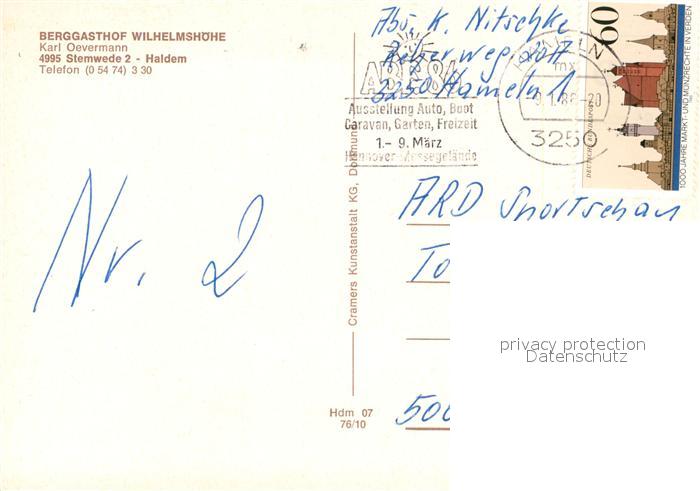 BERGGASTHOF WILHELMSHÖHE
Karl Oevermann
4995 Stemwede 2 - Haldem
Telefon (0 54 74) 3 30
Abs. K. Nitschke
3250 Hameln 1
ABF 88
Ausstellung Auto, Boot
Caravan, Garten, Freizeit
1.- 9. März
Hannover-Messegelände
HAMELN 1
mx
3250
60
DEUTSCHE BUNDESPOST
1000 JAHRE MARKT- UND MÜNZRECHTE IN VERDEN
Nr. 2
Cramers Kunstanstalt KG, Dortmund
ARD Sportschau
To
500
privacy protection
Datenschutz
Hdm 07
76/10